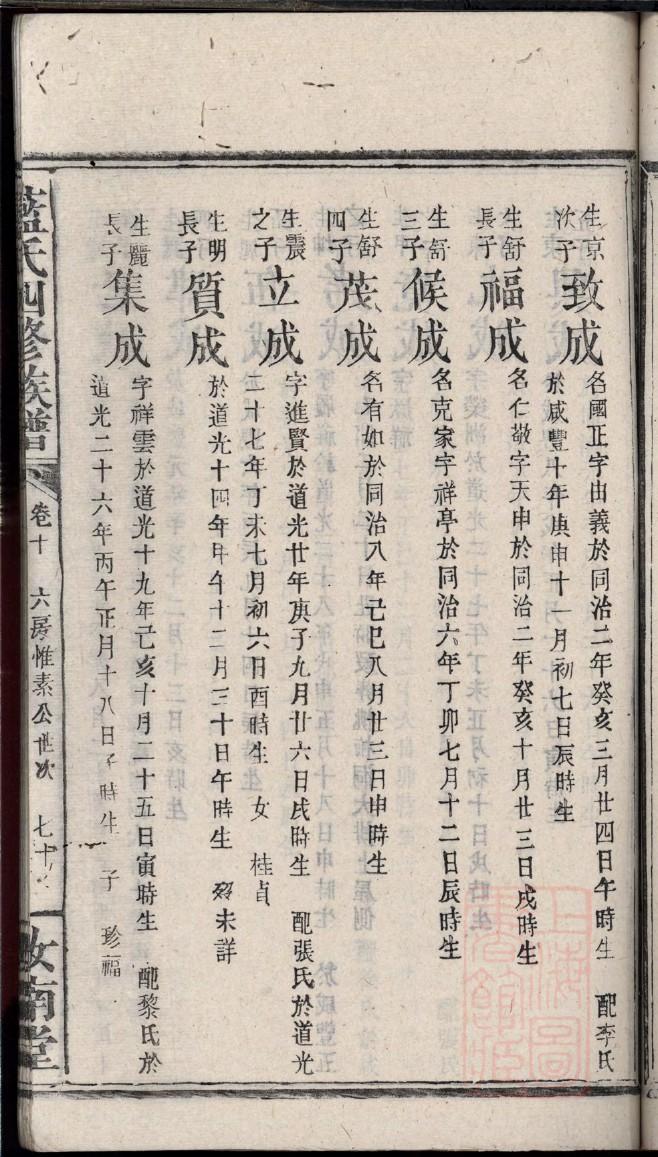 生京次子
致成
名國正字由義於同治二年癸亥三月廿四日午時生 配李氏
於咸豐十年庚申十一月初七日辰時生
生舒長子
福成
名仁敬字天申於同治二年癸亥十月廿三日戌時生
生舒三子
候成
名克家字祥亭於同治六年丁卯七月十二日辰時生
生舒四子
茂成
名有如於同治八年己巳八月廿三日申時生
生震之子
立成
字進賢於道光廿年庚子九月廿六日戌時生 配張氏於道光
二十七年丁未七月初六日酉時生 女 桂貞
生明長子
質成
於道光十四年甲午十二月三十日午時生 歿未詳
生麗長子
集成
字祥雲於道光十九年己亥十月二十五日寅時生 配黎氏於
道光二十六年丙午正月十八日子時生 子 珍福
藍氏四修族譜
卷十 六房惟素公世次 七十
汝南堂
上海圖書館藏